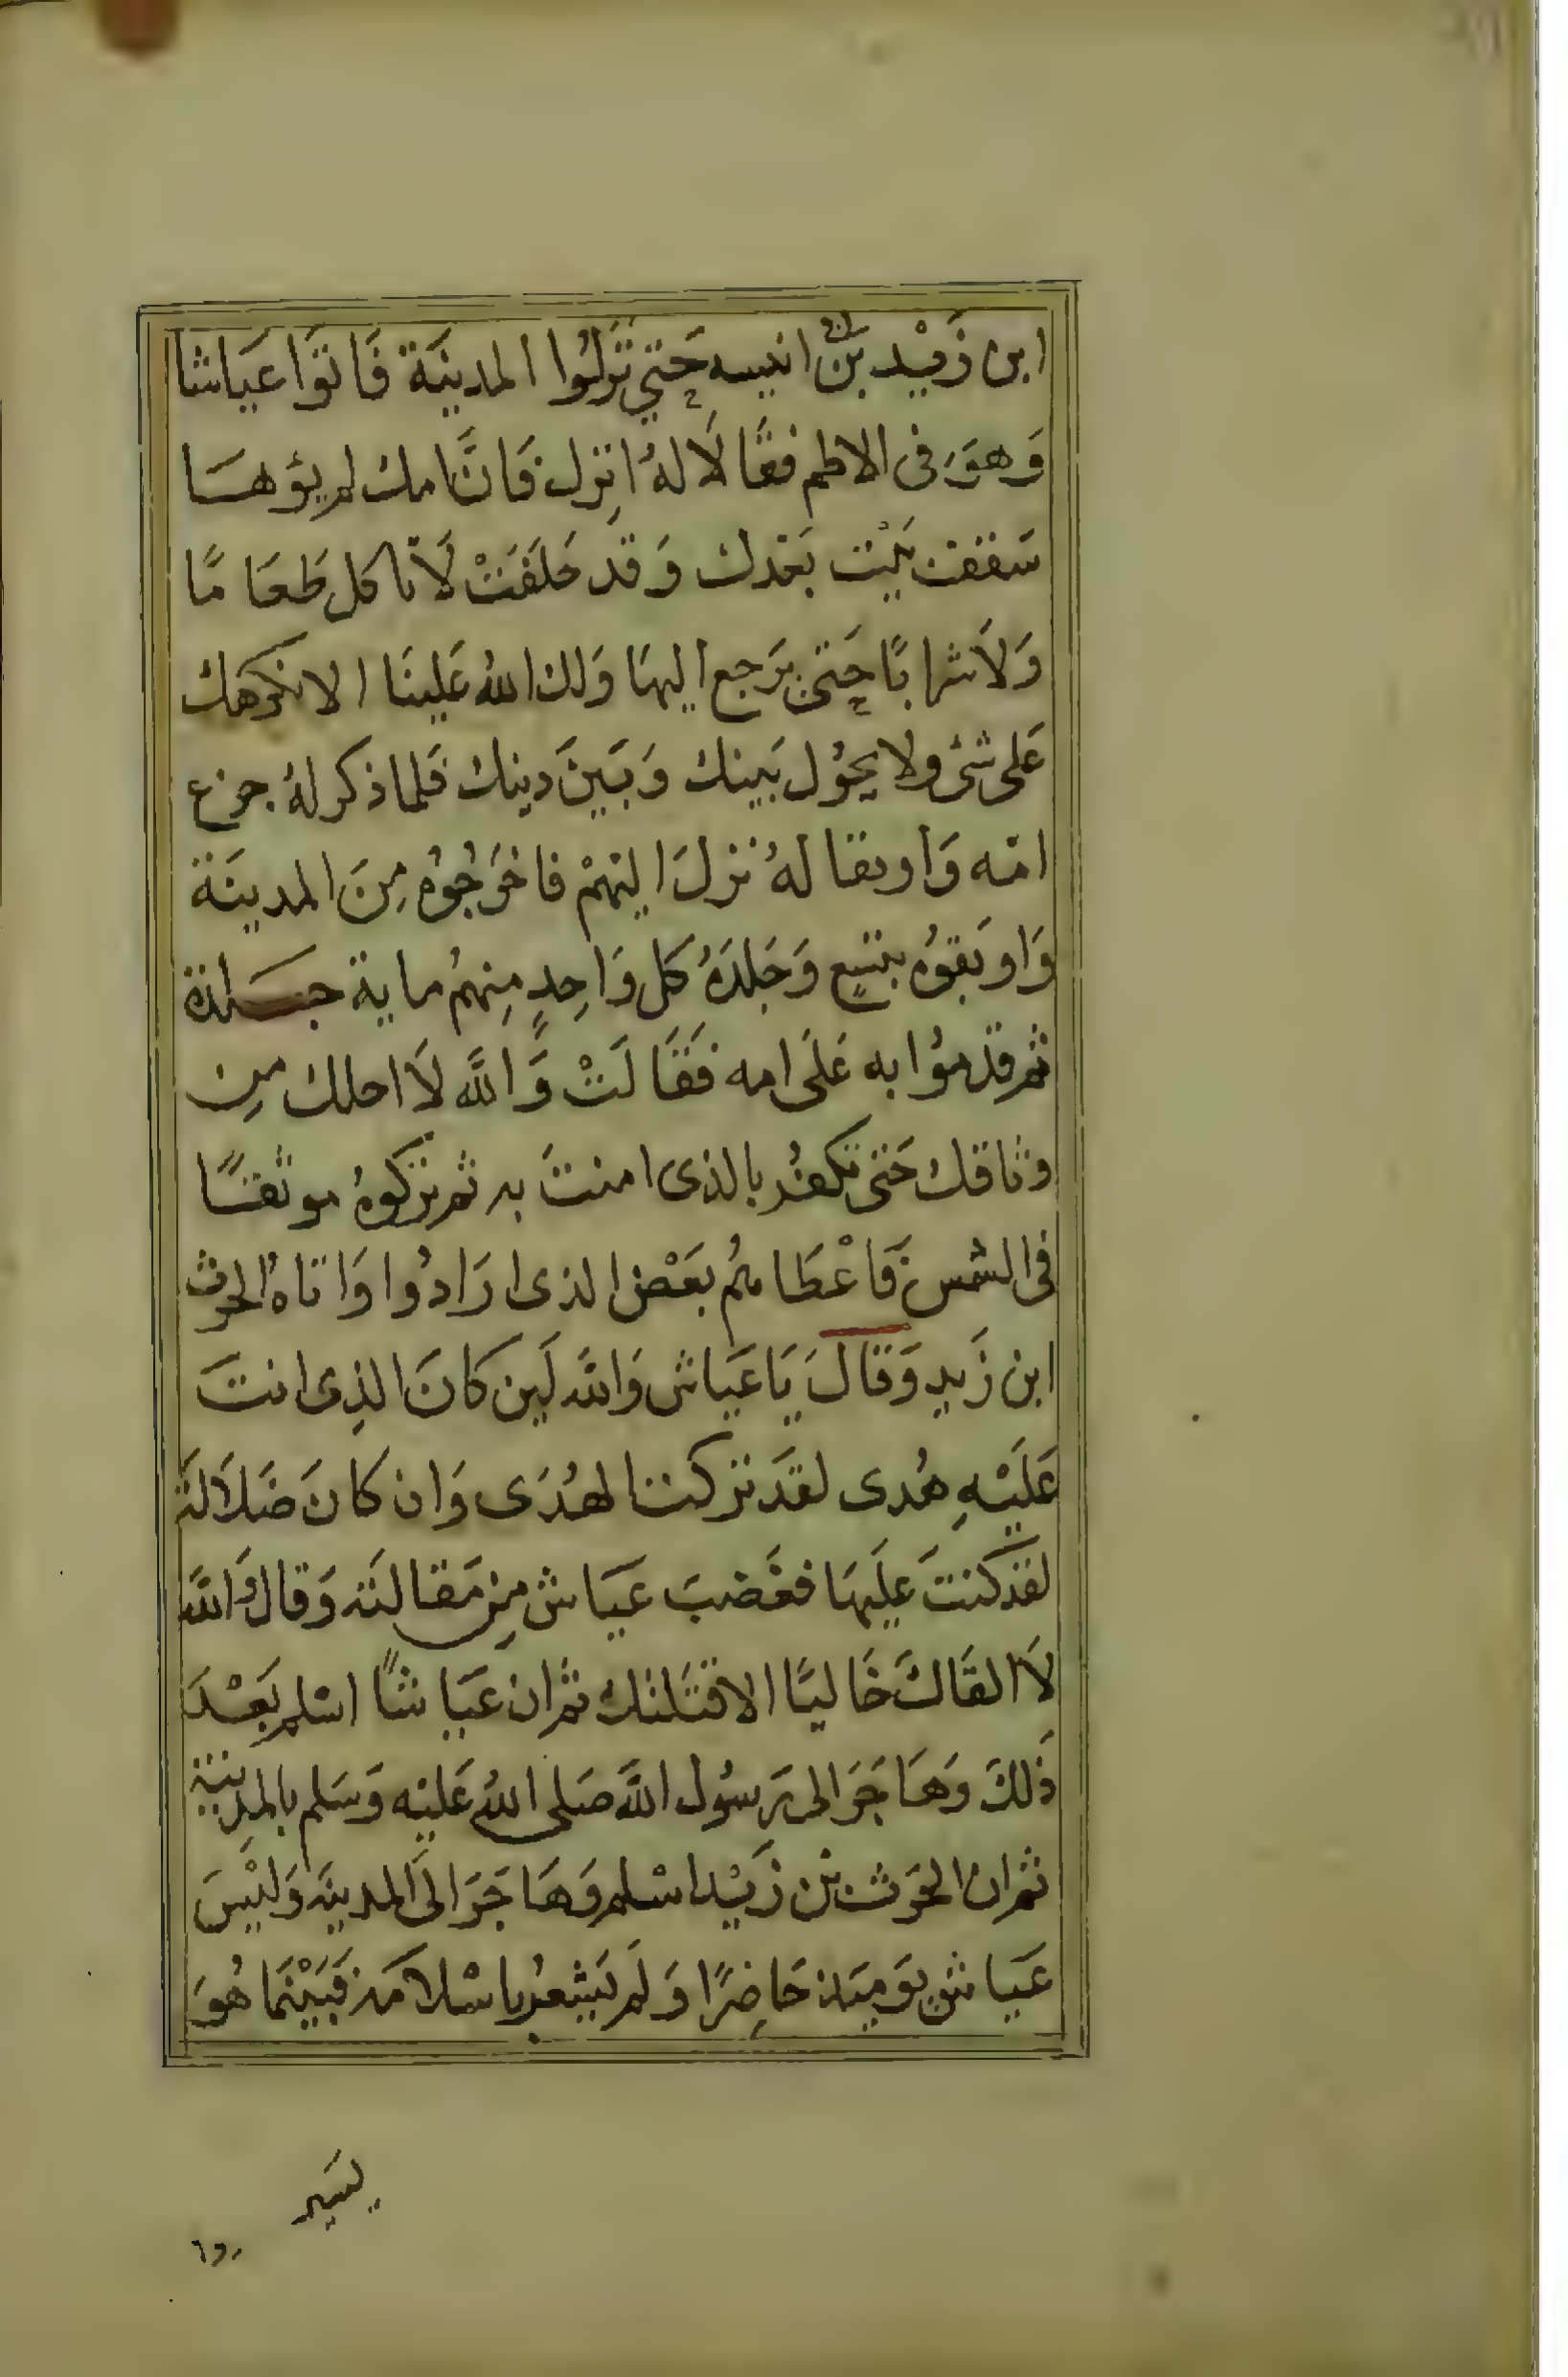 ابن زَيْد بن انيسه حَتي نَزَلُوا المدينَة فَاتوَا عَياشا
وَهوَ فى الاطم فقَالَا لهُ انزِل فَانَّ امك لم يؤهسَا
سَقف بَيْت بَعدك وَقد حَلَفَتْ لَا تاكل طَعَامًا
وَلَا شرابًا حَتى ترَجع اليهَا وَلك اللهُ عَلينَا الا نكرهك
عَلى شئ ولا يحوُل بَينك وَبَينَ دينك فلما ذكر لهُ جزع
امه وَاوثقا لهُ نزلَ اليهمْ فاخرَجُوُه مِنَ المدينَة
وَاوثقوُه بنسعٍ وَجَلدَهُ كل وَاحِدٍ مِنهُم ماية جَلدة
ثم قدموُا به عَلَى امه فَقَالَتْ وَاللَّه لَا احلك مِن
وثاقك حَتى تكفُر بالذى امنتَ به ثم تركوهُ موثقًا
فى الشمس فَاعْطَاهُم بعَض الذى ارَادُوا وَاتاهُ الحرث
ابن زَيدِ وَقالَ يَا عَياش وَاللَّه لَين كَانَ الذِى انتَ
عَلَيْهِ هُدى لقدَ تركت الهُدَى وَان كانَ ضَلَالَة
لقد كنتَ عَليَهَا فغَضبَ عَيَاش مِن مَقالته وَقال وَاللَّه
لَا القَاكَ خَاليًا الا قتَلتك ثم ان عَيَاشًا اسْلم بَعْدَ
ذَلكَ وَهَاجَرَ الى رَسوُل اللَّه صَلى اللهُ عَليْه وَسَلم بالمدِينَة
ثم ان الحَرث بن زَيْد اسْلم وَهَاجَرَ الَى المدينَه وَليْسَ
عَياش يوَميَذ حَاضِرًا وَلَم يَشعرُ باسْلامه فبَيْنمَا هُوَ
يَسير